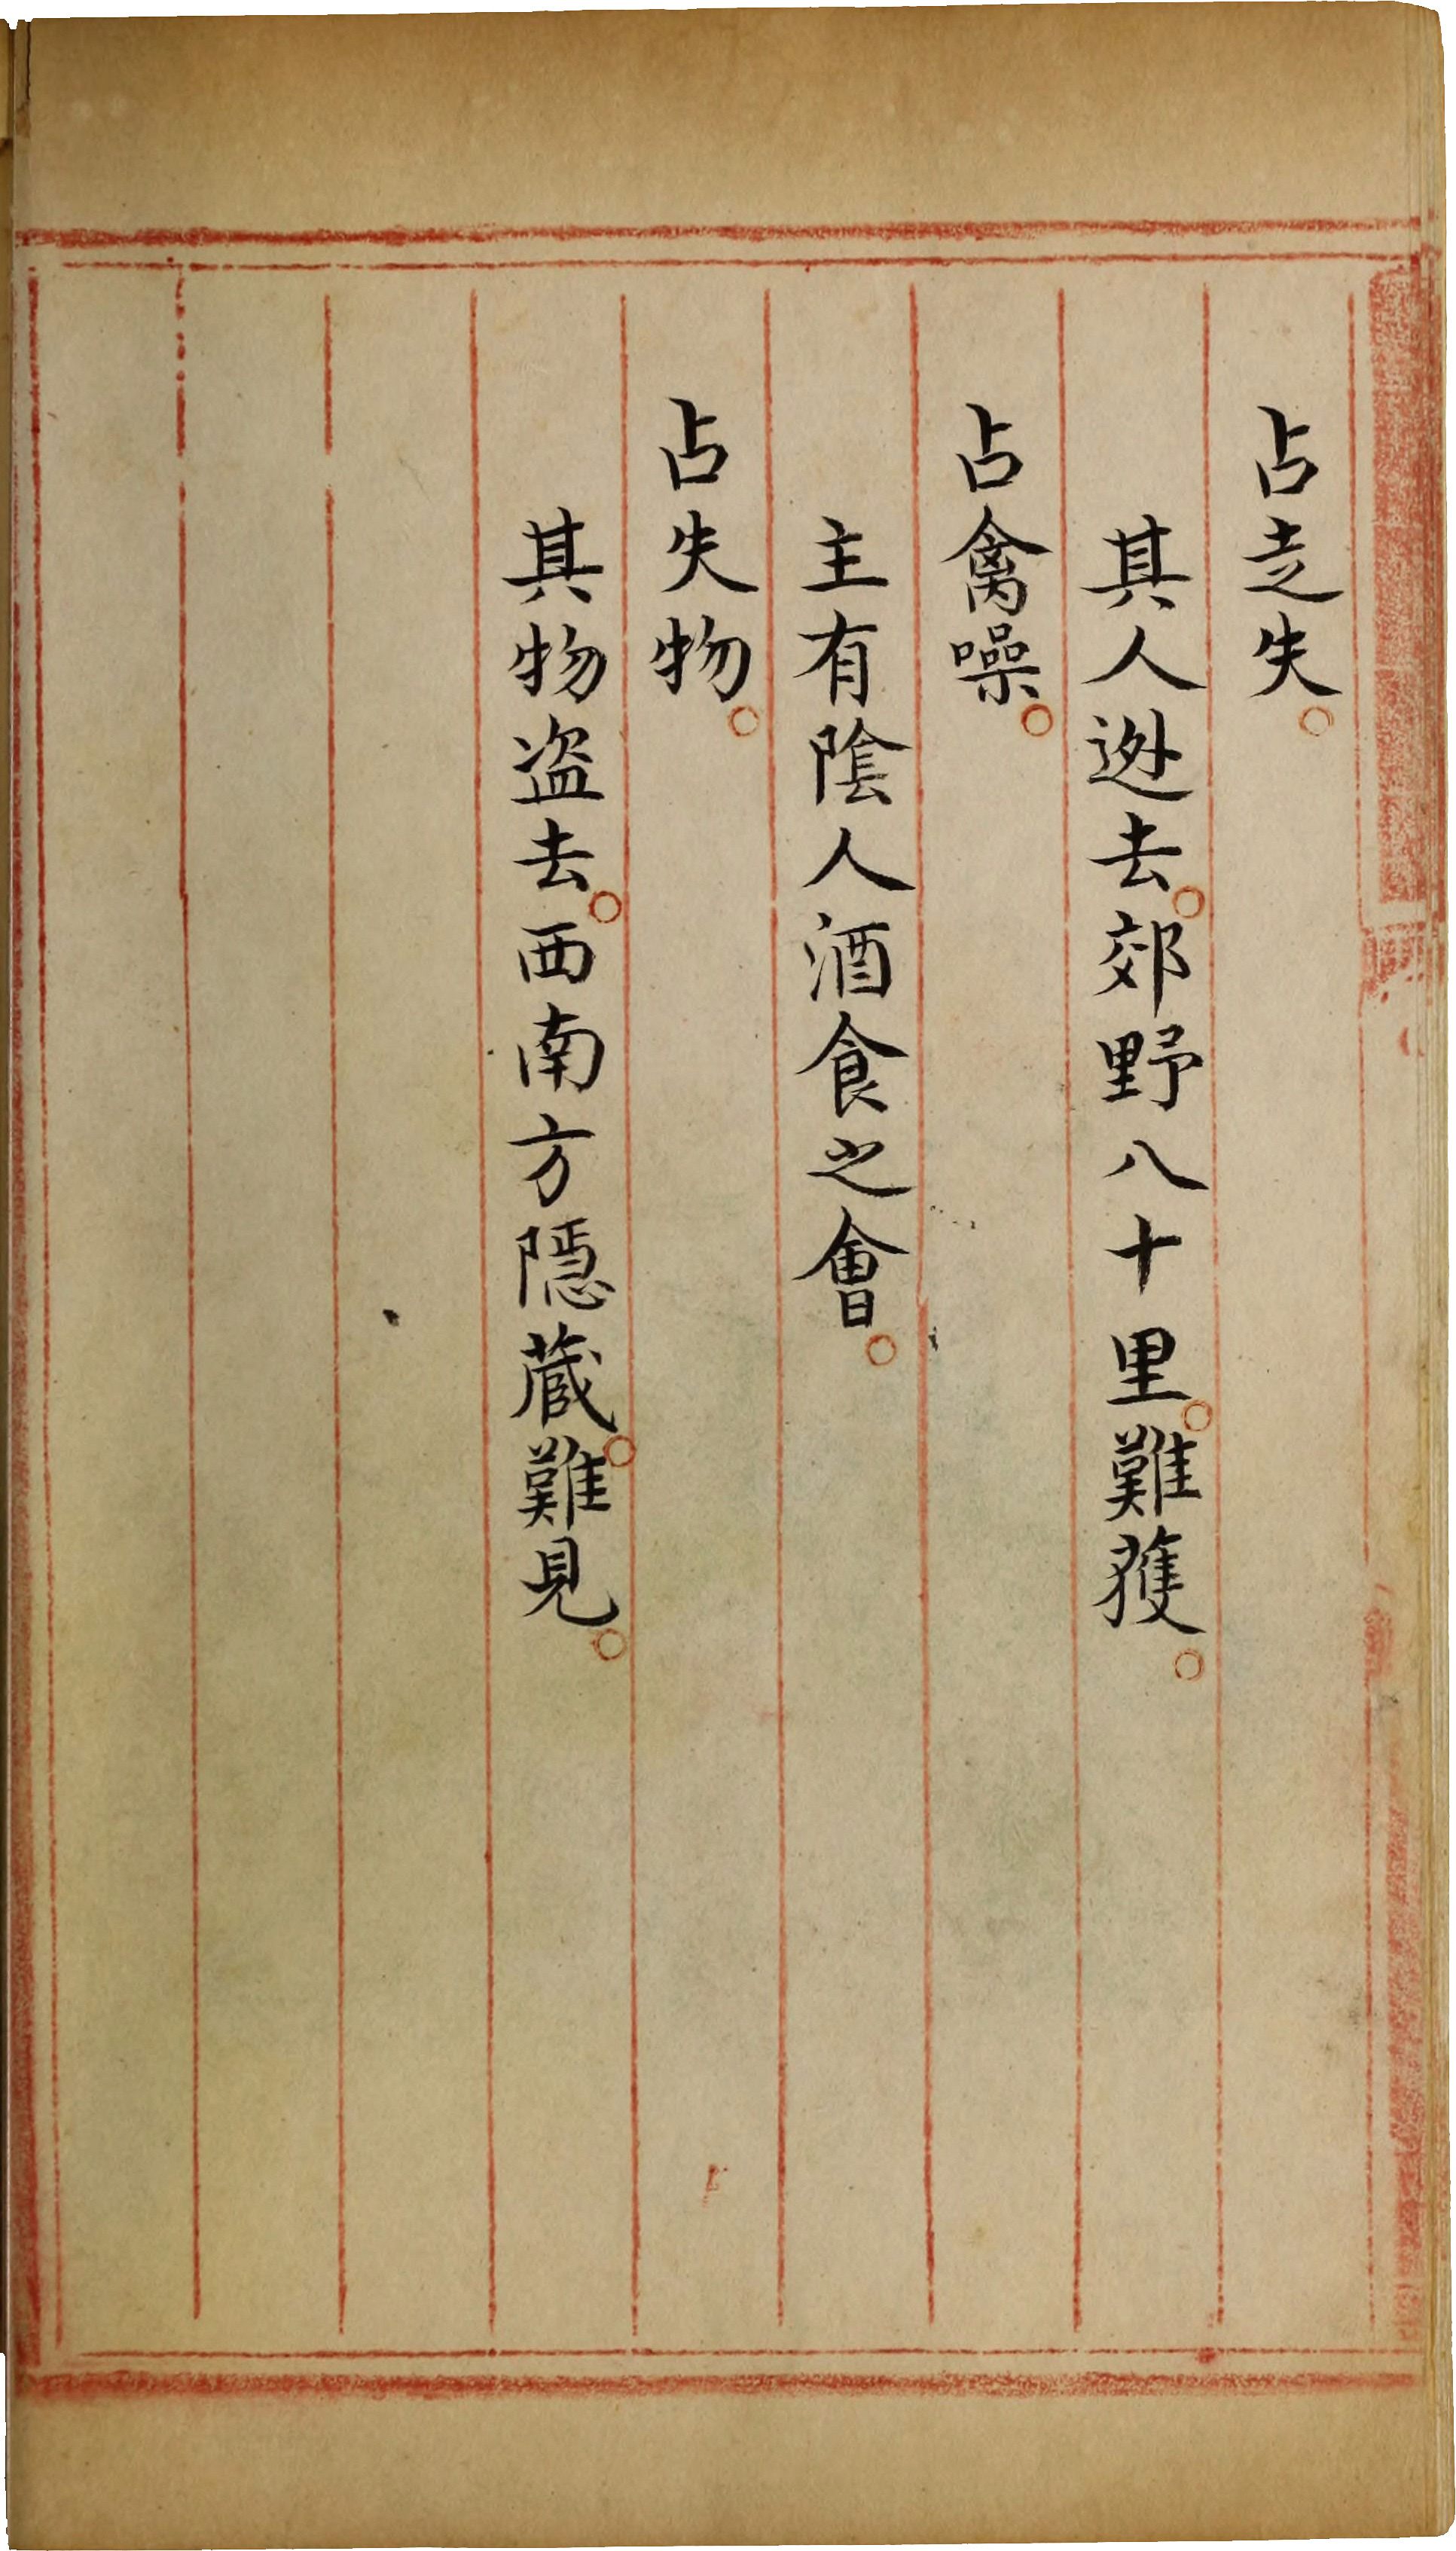 占走失。
其人迯去。郊野八十里。難獲。
占禽噪。
主有陰人酒食之會。
占失物。
其物盗去。西南方隱藏。難見。